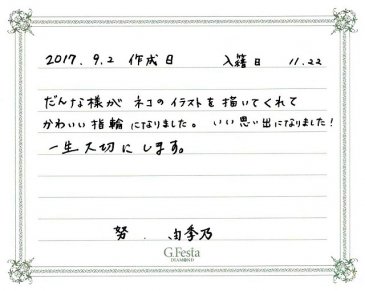 2017.9.2 作成日 入籍日 11.22
だんな様が ネコのイラストを描いてくれて
かわいい指輪になりました。いい思い出になりました!
一生大切にします。
努 . 由季乃
G.Festa
DIAMOND